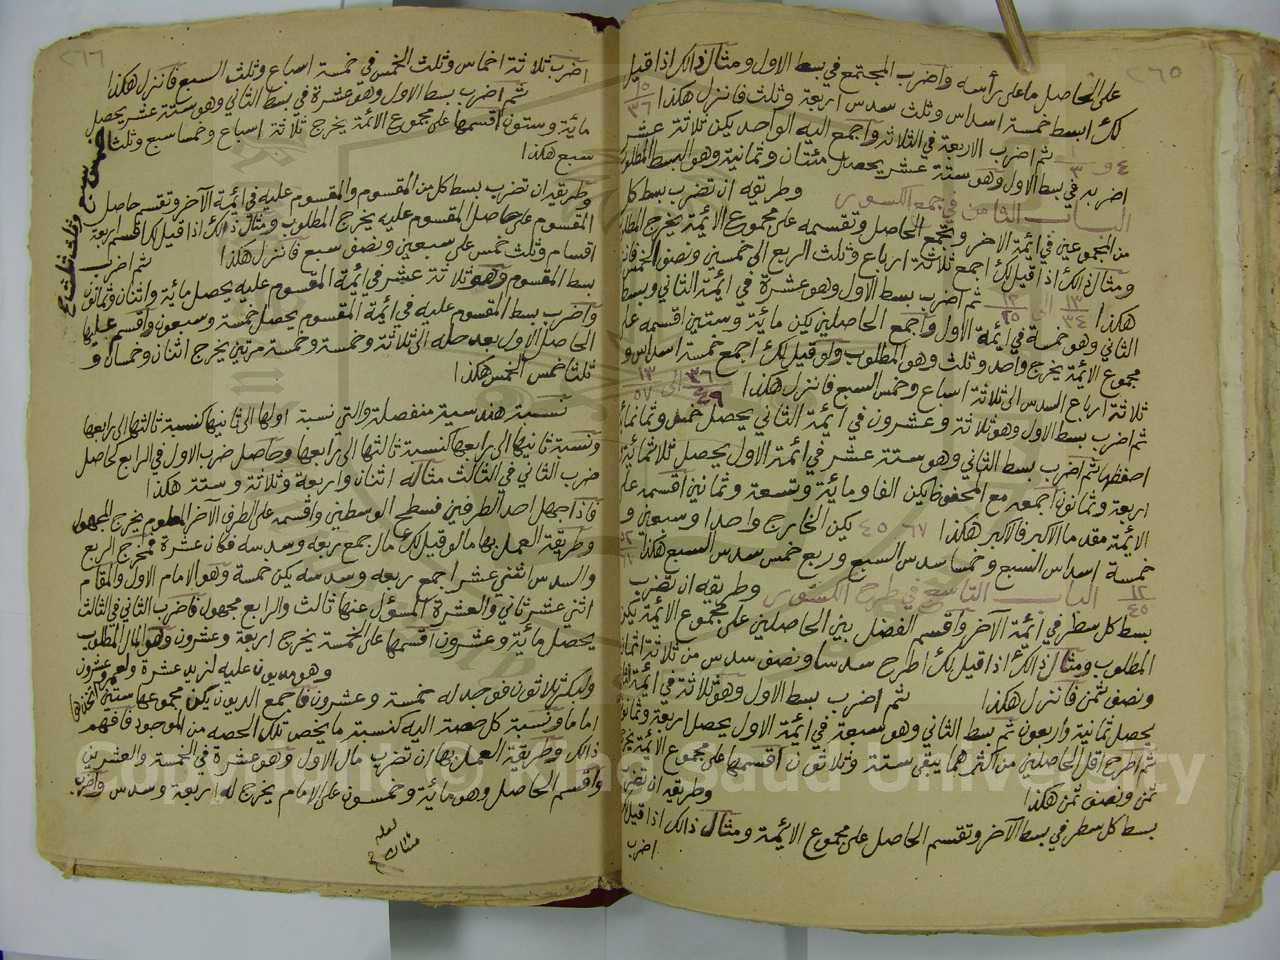 ٢٦٥
على الحاصل ما على رأسه واضرب المجتمع في بسط الاول ومثال ذالك اذا قيل
لك ابسط خمسة اسداس وثلث سدس اربعة وثلث فانزل هكذا
ثم اضرب الاربعة في الثلاثة واجمع اليه الواحد يكن ثلاثة عشر
اضربه في بسط الاول وهو ستة عشر يحصل مئتان وثمانية وهو البسط المطلوب
الباب الثامن في جمع الكسور وطريقه ان تضرب بسط كل
من المجموعين في ائمة الاخر وتجمع الحاصل وتقسمه على مجموع الائمة يخرج المطلوب
ومثال ذالك اذا قيل لك اجمع ثلاثة ارباع وثلث الربع الى خمسين ونصف الخمس
هكذا ثم اضرب بسط الاول وهو عشرة في ائمة الثاني وبسط
الثاني وهو خمسة في ائمة الاول واجمع الحاصلين يكن مائة وستين اقسمه على
مجموع الائمة يخرج واحد وثلث وهو المطلوب ولو قيل لك اجمع خمسة اسداس و
ثلاثة ارباع السدس الى ثلاثة اسباع وخمس السبع فانزل هكذا
ثم اضرب بسط الاول وهو ثلاثة وعشرون في ائمة الثاني يحصل خمس وثمانمائة
احفظها ثم اضرب بسط الثاني وهو ستة عشر في ائمة الاول يحصل ثلاثمائة
اربعة وثمانون اجمعه مع المحفوظ يكن الفا ومائة وتسعة وثمانين اقسمه على
الائمة مقدما الاكبر فالاكبر هكذا ٦٧ ٤٥ يكن الخارج واحدا وسبعين و
خمسة اسداس السبع وخمسا سدس السبع وربع خمس سدس السبع هكذا
الباب التاسع في طرح الكسور وطريقه ان تضرب
بسط كل سطر في ائمة الآخر واقسم الفضل بين الحاصلين على مجموع الائمة يكن
المطلوب ومثال ذالك اذا قيل لك اطرح سدسا ونصف سدس من ثلاثة اثمان
ونصف ثمن فانزل هكذا ثم اضرب بسط الاول وهو ثلاثة في ائمة
يحصل ثمانية واربعون ثم بسط الثاني وهو سبعة في ائمة الاول يحصل اربعة وثمانون
ثم اطرح اقل الحاصلين من اكثرهما يبقى ستة وثلاثون اقسمها على مجموع الائمة يخرج
ثمن ونصف ثمن هكذا وطريقه ان تضرب
بسط كل سطر في بسط الآخر وتقسم الحاصل على مجموع الائمة ومثال ذالك اذا قيل لك
اضرب
٢٦٦
اضرب ثلاثة اخماس وثلث الخمس في خمسة اسباع وثلث السبع فانزل هكذا
ثم اضرب بسط الاول وهو عشرة في بسط الثاني وهو ستة عشر يحصل
مائة وستون اقسمها على مجموع الائمة يخرج ثلاثة اسباع وخمسا سبع وثلثا
خمس سبع وثلث ثلث
سبع هكذا
وطريقه ان تضرب بسط كل من المقسوم والمقسوم عليه في ائمة الآخر وتقسم حاصل
المقسوم على حاصل المقسوم عليه يخرج المطلوب ومثال ذالك اذا قيل لك اقسم اربعة
اقسام وثلث خمس على سبعين ونصف سبع فانزل هكذا ثم اضرب
بسط المقسوم وهو ثلاثة عشر في ائمة المقسوم عليه يحصل مائة واثنان وثمانون
واضرب بسط المقسوم عليه في ائمة المقسوم يحصل خمسة وسبعون واقسم عليها
الحاصل الاول بعد حله الى ثلاثة وخمسة وخمسة مرتين يخرج اثنان وخمسان و
ثلثا خمس الخمس هكذا
نسبة هندسية منفصلة والتي نسبة اولها الى ثانيها كنسبة ثالثها الى رابعها
ونسبة ثانيها الى رابعها كنسبة ثالثها الى رابعها وحاصل ضرب الاول في الرابع كحاصل
ضرب الثاني في الثالث مثاله اثنان واربعة وثلاثة وستة هكذا
فاذا جهل احد الطرفين فسطح الوسطين واقسمه على الطرف الآخر المعلوم يخرج المجهول
وطريقة العمل بها ما لو قيل لك مال جمع ربعه وسدسه فكان عشرة فمخرج الربع
والسدس اثني عشر اجمع ربعه وسدسه يكن خمسة وهو الامام الاول والمقام
اثنى عشر ثاني والعشرة المسؤل عنها ثالث والرابع مجهول فاضرب الثاني في الثالث
يحصل مائة وعشرون اقسمها على الخمسة يخرج اربعة وعشرون وهو المال المطلوب
وهو مديون عليه لزيد عشرة ولعمر عشرون
ولبكر ثلاثون فوجد له خمسة وعشرون فاجمع الديون يكن مجموعها ستين
اماما ونسبة كل حصة اليه كنسبة ما يخص تلك الحصة من الموجود فافهم
ذالك وطريقة العمل بها ان تضرب مال الاول وهو عشرة في الخمسة والعشرين
واقسم الحاصل وهو مائة وخمسون على الامام يخرج له اربعة وسدس واضرب
لعله
مئتان
Copyright © King Saud University